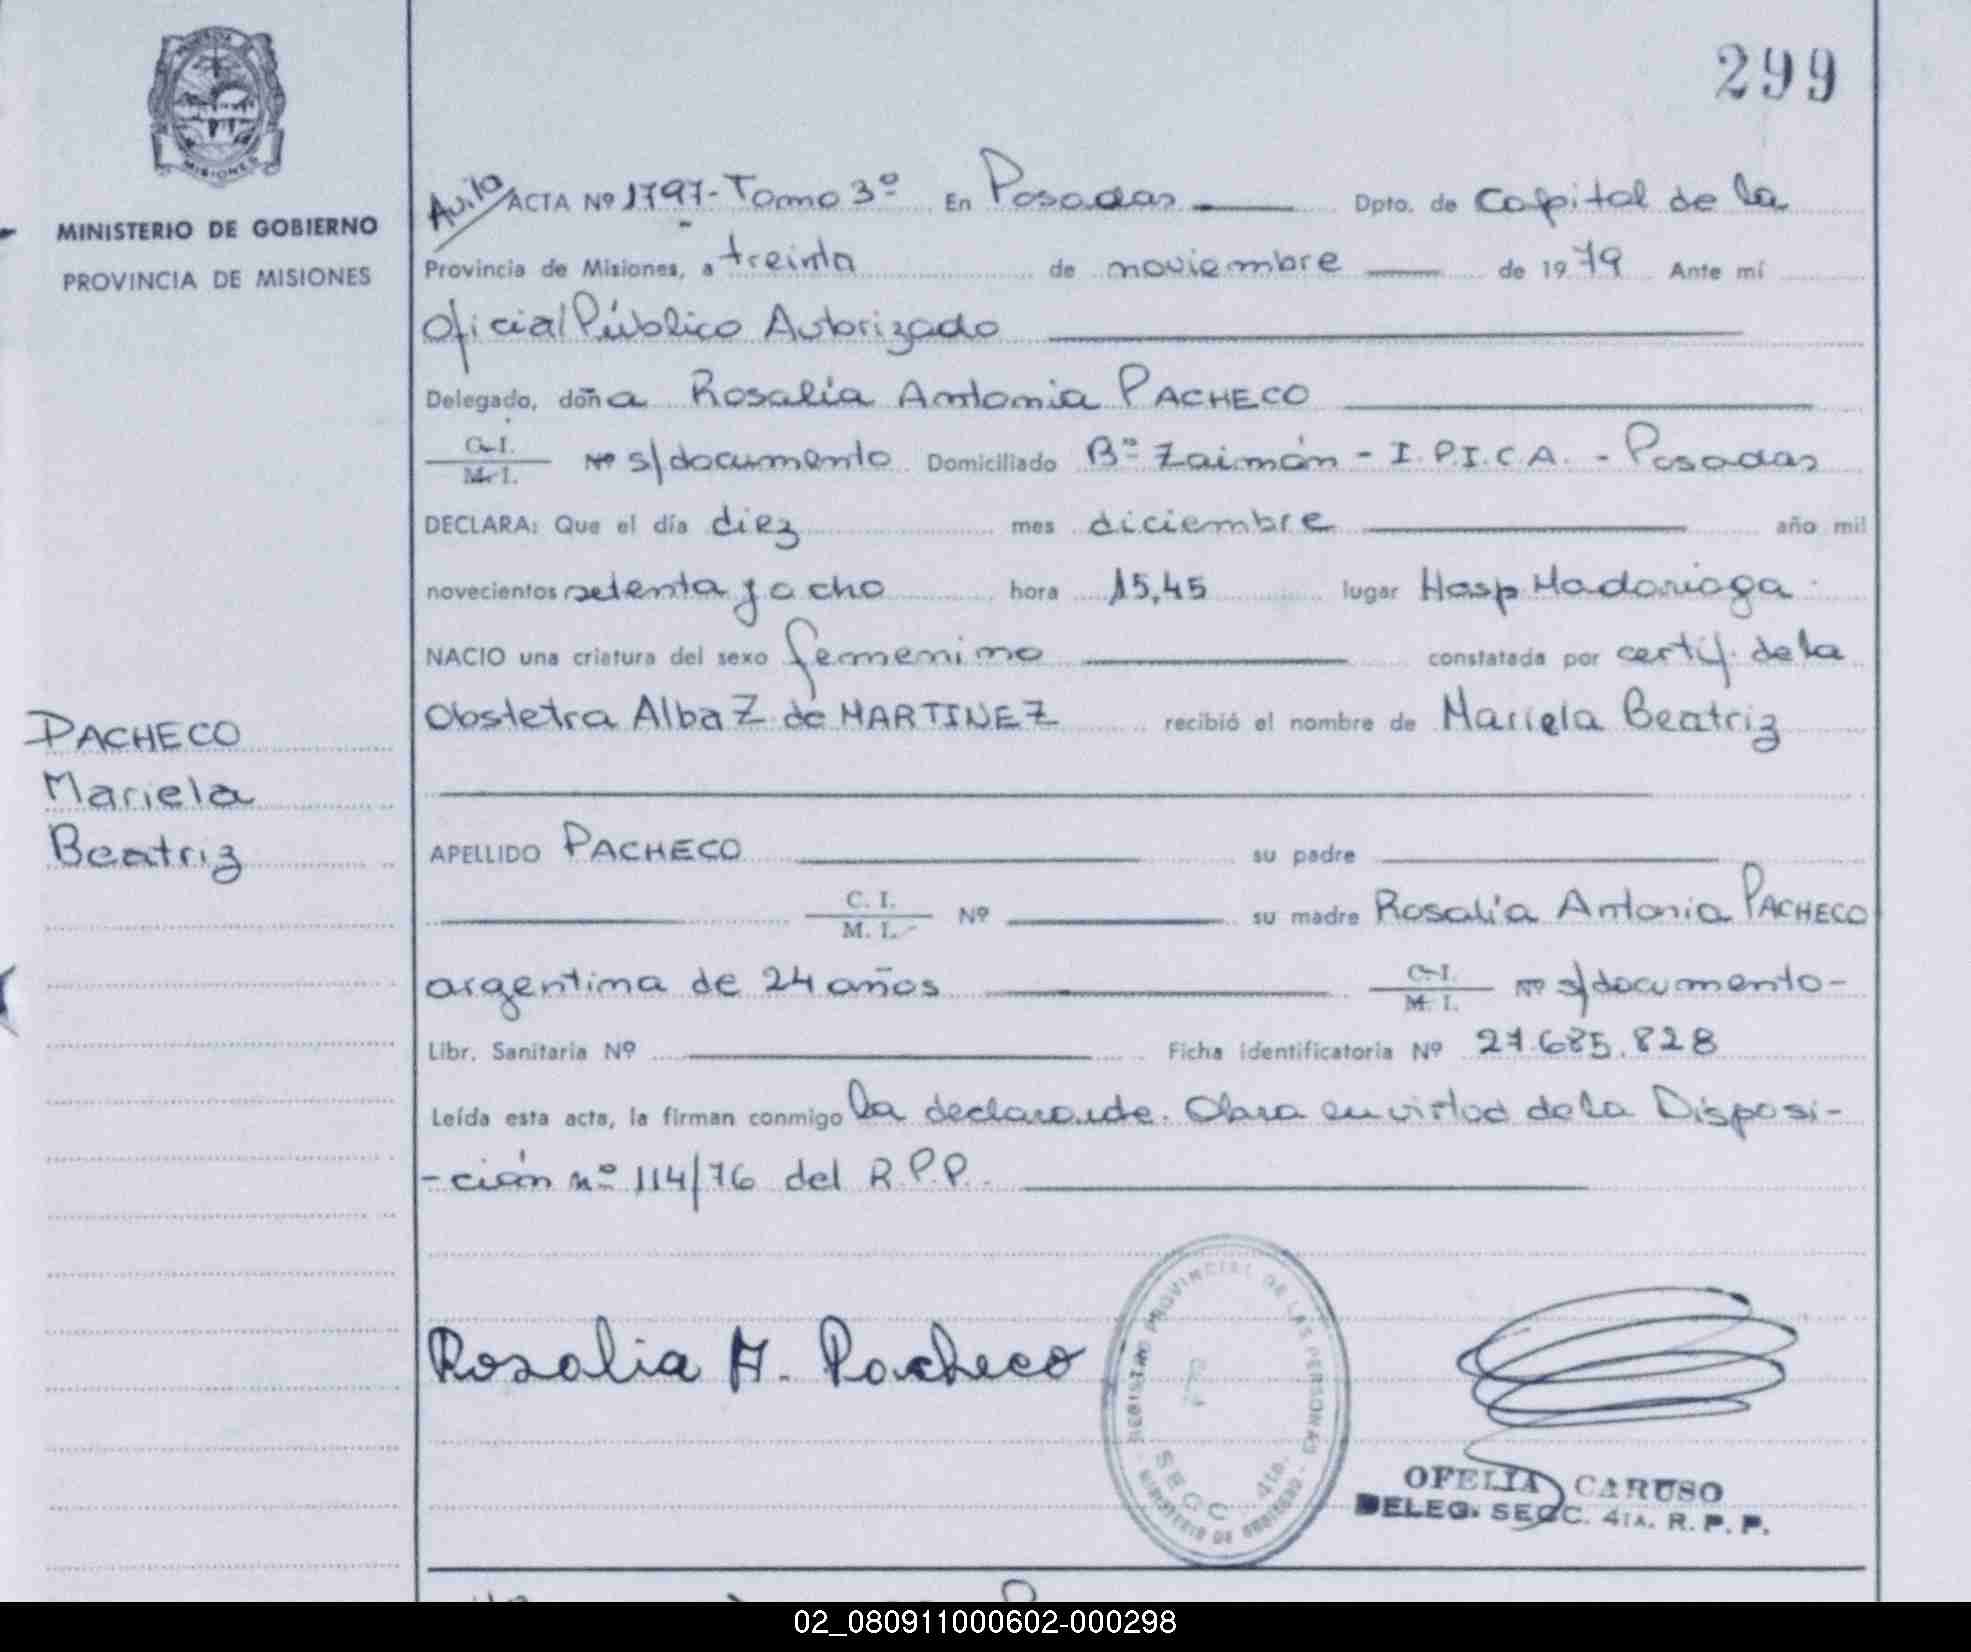 299
MISIONES
MINISTERIO DE GOBIERNO
PROVINCIA DE MISIONES
Avila ACTA Nº 1797- Tomo 3º En Posadas Dpto. de Capital de la
Provincia de Misiones, a treinta de noviembre de 19 79 Ante mí
Oficial Público Autorizado
Delegado, doña Rosalía Antonia PACHECO
C. I.
M. I. Nº s/documento Domiciliado Bº Zaimán - I.P.I.C.A. - Posadas
DECLARA: Que el día diez mes diciembre año mil
novecientos setenta y ocho hora 15,45 lugar Hosp Madariaga
NACIO una criatura del sexo femenino constatada por certif. de la
Obstetra Alba Z de MARTINEZ recibió el nombre de Mariela Beatriz
PACHECO
Mariela
Beatriz
APELLIDO PACHECO su padre
C. I.
M. I. Nº su madre Rosalía Antonia PACHECO
argentina de 24 años C. I.
M. I. Nº s/documento-
Libr. Sanitaria Nº Ficha identificatoria Nº 27.685.828
Leída esta acta, la firman conmigo la declarante. Obra en virtud de la Disposi-
-ción nº 114/76 del R.P.P.
Rosalia A. Pacheco
REGISTRO PROVINCIAL DE LAS PERSONAS
SECC. 4ta.
MINISTERIO DE GOBIERNO
OFELIA CARUSO
DELEG. SECC. 4TA. R. P. P.
02_080911000602-000298